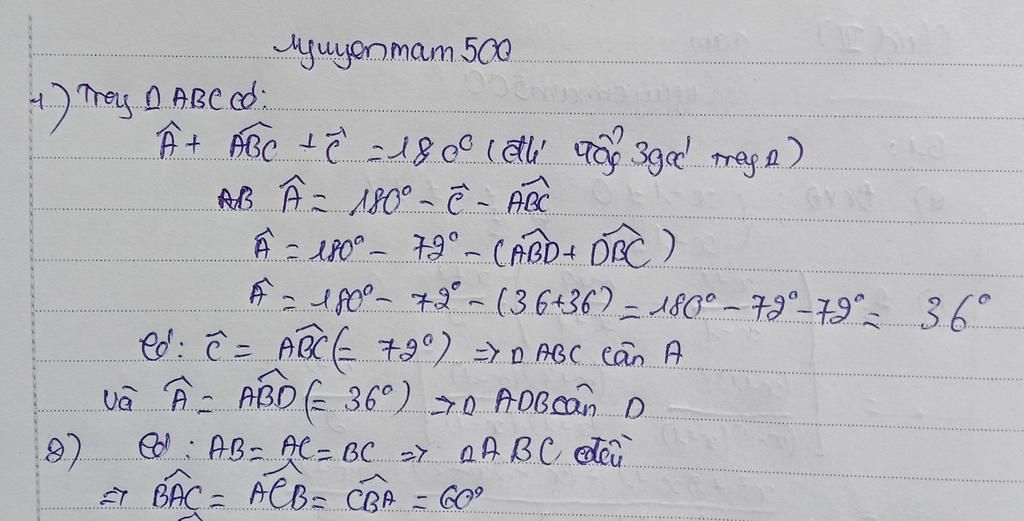 nguyenmam500
1) Trong Δ ABC có:
Â + ABĈ + Ĉ = 180° (đ/lí tổng 3 góc trong Δ)
Â = 180° - Ĉ - ABĈ
Â = 180° - 72° - (ABD̂ + DBĈ)
Â = 180° - 72° - (36+36) = 180° - 72° - 72° = 36°
Có: Ĉ = ABĈ (= 72°) => Δ ABC cân A
và Â = ABD̂ (= 36°) => Δ ADB cân D
2) Có: AB = AC = BC => Δ ABC đều
=> BAĈ = ACB̂ = CBÂ = 60°